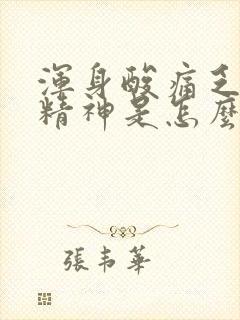 渾身酸痛乏
精神是怎麼
張韋華